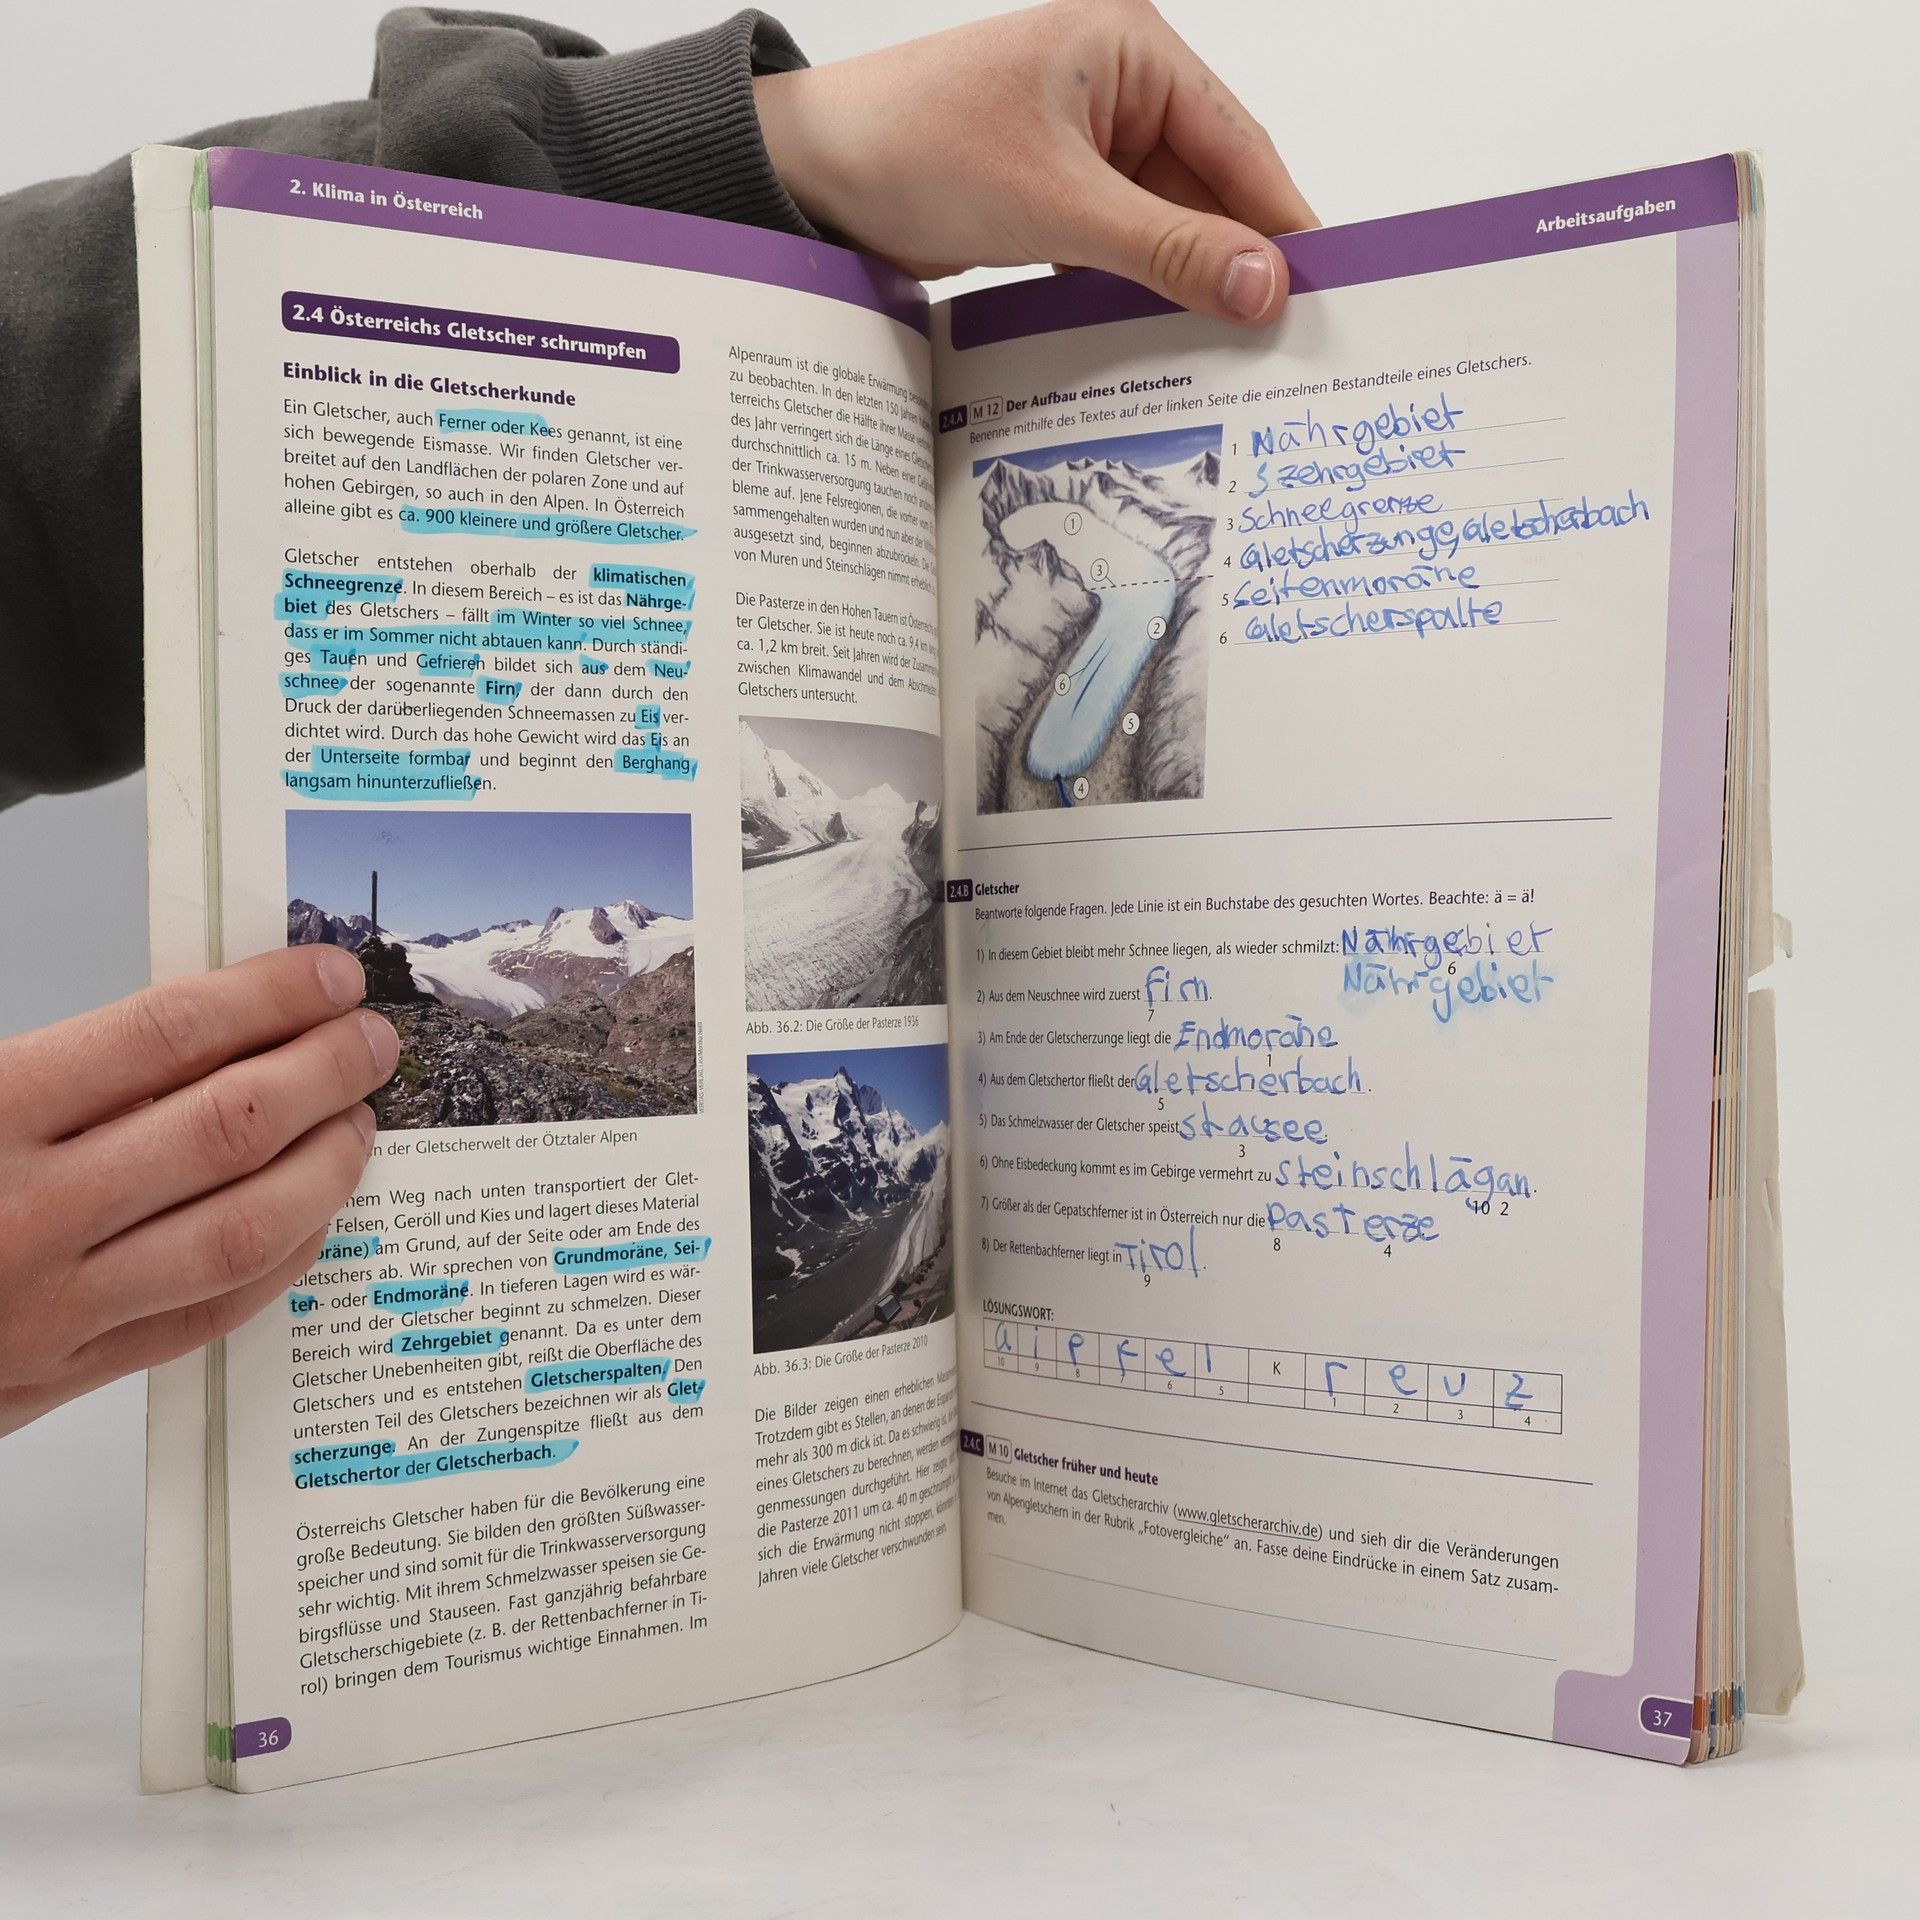 2. Klima in Österreich
2.4 Österreichs Gletscher schrumpfen
Einblick in die Gletscherkunde
Ein Gletscher, auch Ferner oder Kees genannt, ist eine
sich bewegende Eismasse. Wir finden Gletscher ver-
breitet auf den Landflächen der polaren Zone und auf
hohen Gebirgen, so auch in den Alpen. In Österreich
alleine gibt es ca. 900 kleinere und größere Gletscher.
Gletscher entstehen oberhalb der klimatischen
Schneegrenze. In diesem Bereich – es ist das Nährge-
biet des Gletschers – fällt im Winter so viel Schnee,
dass er im Sommer nicht abtauen kann. Durch ständi-
ges Tauen und Gefrieren bildet sich aus dem Neu-
schnee der sogenannte Firn, der dann durch den
Druck der darüberliegenden Schneemassen zu Eis ver-
dichtet wird. Durch das hohe Gewicht wird das Eis an
der Unterseite formbar und beginnt den Berghang
langsam hinunterzufließen.
n der Gletscherwelt der Ötztaler Alpen
nem Weg nach unten transportiert der Glet-
Felsen, Geröll und Kies und lagert dieses Material
oräne) am Grund, auf der Seite oder am Ende des
Gletschers ab. Wir sprechen von Grundmoräne, Sei-
ten- oder Endmoräne. In tieferen Lagen wird es wär-
mer und der Gletscher beginnt zu schmelzen. Dieser
Bereich wird Zehrgebiet genannt. Da es unter dem
Gletscher Unebenheiten gibt, reißt die Oberfläche des
Gletschers und es entstehen Gletscherspalten. Den
untersten Teil des Gletschers bezeichnen wir als Glet-
scherzunge. An der Zungenspitze fließt aus dem
Gletschertor der Gletscherbach.
Österreichs Gletscher haben für die Bevölkerung eine
große Bedeutung. Sie bilden den größten Süßwasser-
speicher und sind somit für die Trinkwasserversorgung
sehr wichtig. Mit ihrem Schmelzwasser speisen sie Ge-
birgsflüsse und Stauseen. Fast ganzjährig befahrbare
Gletscherschigebiete (z. B. der Rettenbachferner in Ti-
rol) bringen dem Tourismus wichtige Einnahmen. Im
36
Alpenraum ist die globale Erwärmung
zu beobachten. In den letzten 150 Jahren
terreichs Gletscher die Hälfte ihrer Masse
des Jahr verringert sich die Länge eines
durchschnittlich ca. 15 m. Neben einer
der Trinkwasserversorgung tauchen noch
bleme auf. Jene Felsregionen, die vorher vom
sammengehalten wurden und nun aber der
ausgesetzt sind, beginnen abzubröckeln. Die
von Muren und Steinschlägen nimmt
Die Pasterze in den Hohen Tauern ist
ter Gletscher. Sie ist heute noch ca. 9,4 km
ca. 1,2 km breit. Seit Jahren wird der
zwischen Klimawandel und dem
Gletschers untersucht.
Abb. 36.2: Die Größe der Pasterze 1936
Abb. 36.3: Die Größe der Pasterze 2010
Die Bilder zeigen einen erheblichen
Trotzdem gibt es Stellen, an denen der
mehr als 300 m dick ist. Da es schwierig ist,
eines Gletschers zu berechnen, werden
genmessungen durchgeführt. Hier zeigte
die Pasterze 2011 um ca. 40 m geschrumpft
sich die Erwärmung nicht stoppen, könnten
Jahren viele Gletscher verschwunden sein.
Arbeitsaufgaben
2.4.A M 12 Der Aufbau eines Gletschers
Benenne mithilfe des Textes auf der linken Seite die einzelnen Bestandteile eines Gletschers.
1 Nährgebiet
2 zehrgebiet
3 Schneegrenze
4 Gletscherzunge, Gletscherbach
5 Seitenmoräne
6 Gletscherspalte
1
3
2
6
5
4
2.4.B Gletscher
Beantworte folgende Fragen. Jede Linie ist ein Buchstabe des gesuchten Wortes. Beachte: ä = ä!
1) In diesem Gebiet bleibt mehr Schnee liegen, als wieder schmilzt: Nährgebiet
6
Nährgebiet
2) Aus dem Neuschnee wird zuerst firn.
7
3) Am Ende der Gletscherzunge liegt die Endmoräne
1
4) Aus dem Gletschertor fließt der Gletscherbach.
5
5) Das Schmelzwasser der Gletscher speist stausee.
3
6) Ohne Eisbedeckung kommt es im Gebirge vermehrt zu steinschlägan.
10 2
7) Größer als der Gepatschferner ist in Österreich nur die Pasterze
8 4
8) Der Rettenbachferner liegt in Tirol.
9
LÖSUNGSWORT:
G i p f e l K r e u z
10 9 8 7 6 5 1 2 3 4
2.4.C M 10 Gletscher früher und heute
Besuche im Internet das Gletscherarchiv (www.gletscherarchiv.de) und sieh dir die Veränderungen
von Alpengletschern in der Rubrik „Fotovergleiche“ an. Fasse deine Eindrücke in einem Satz zusam-
men.
37